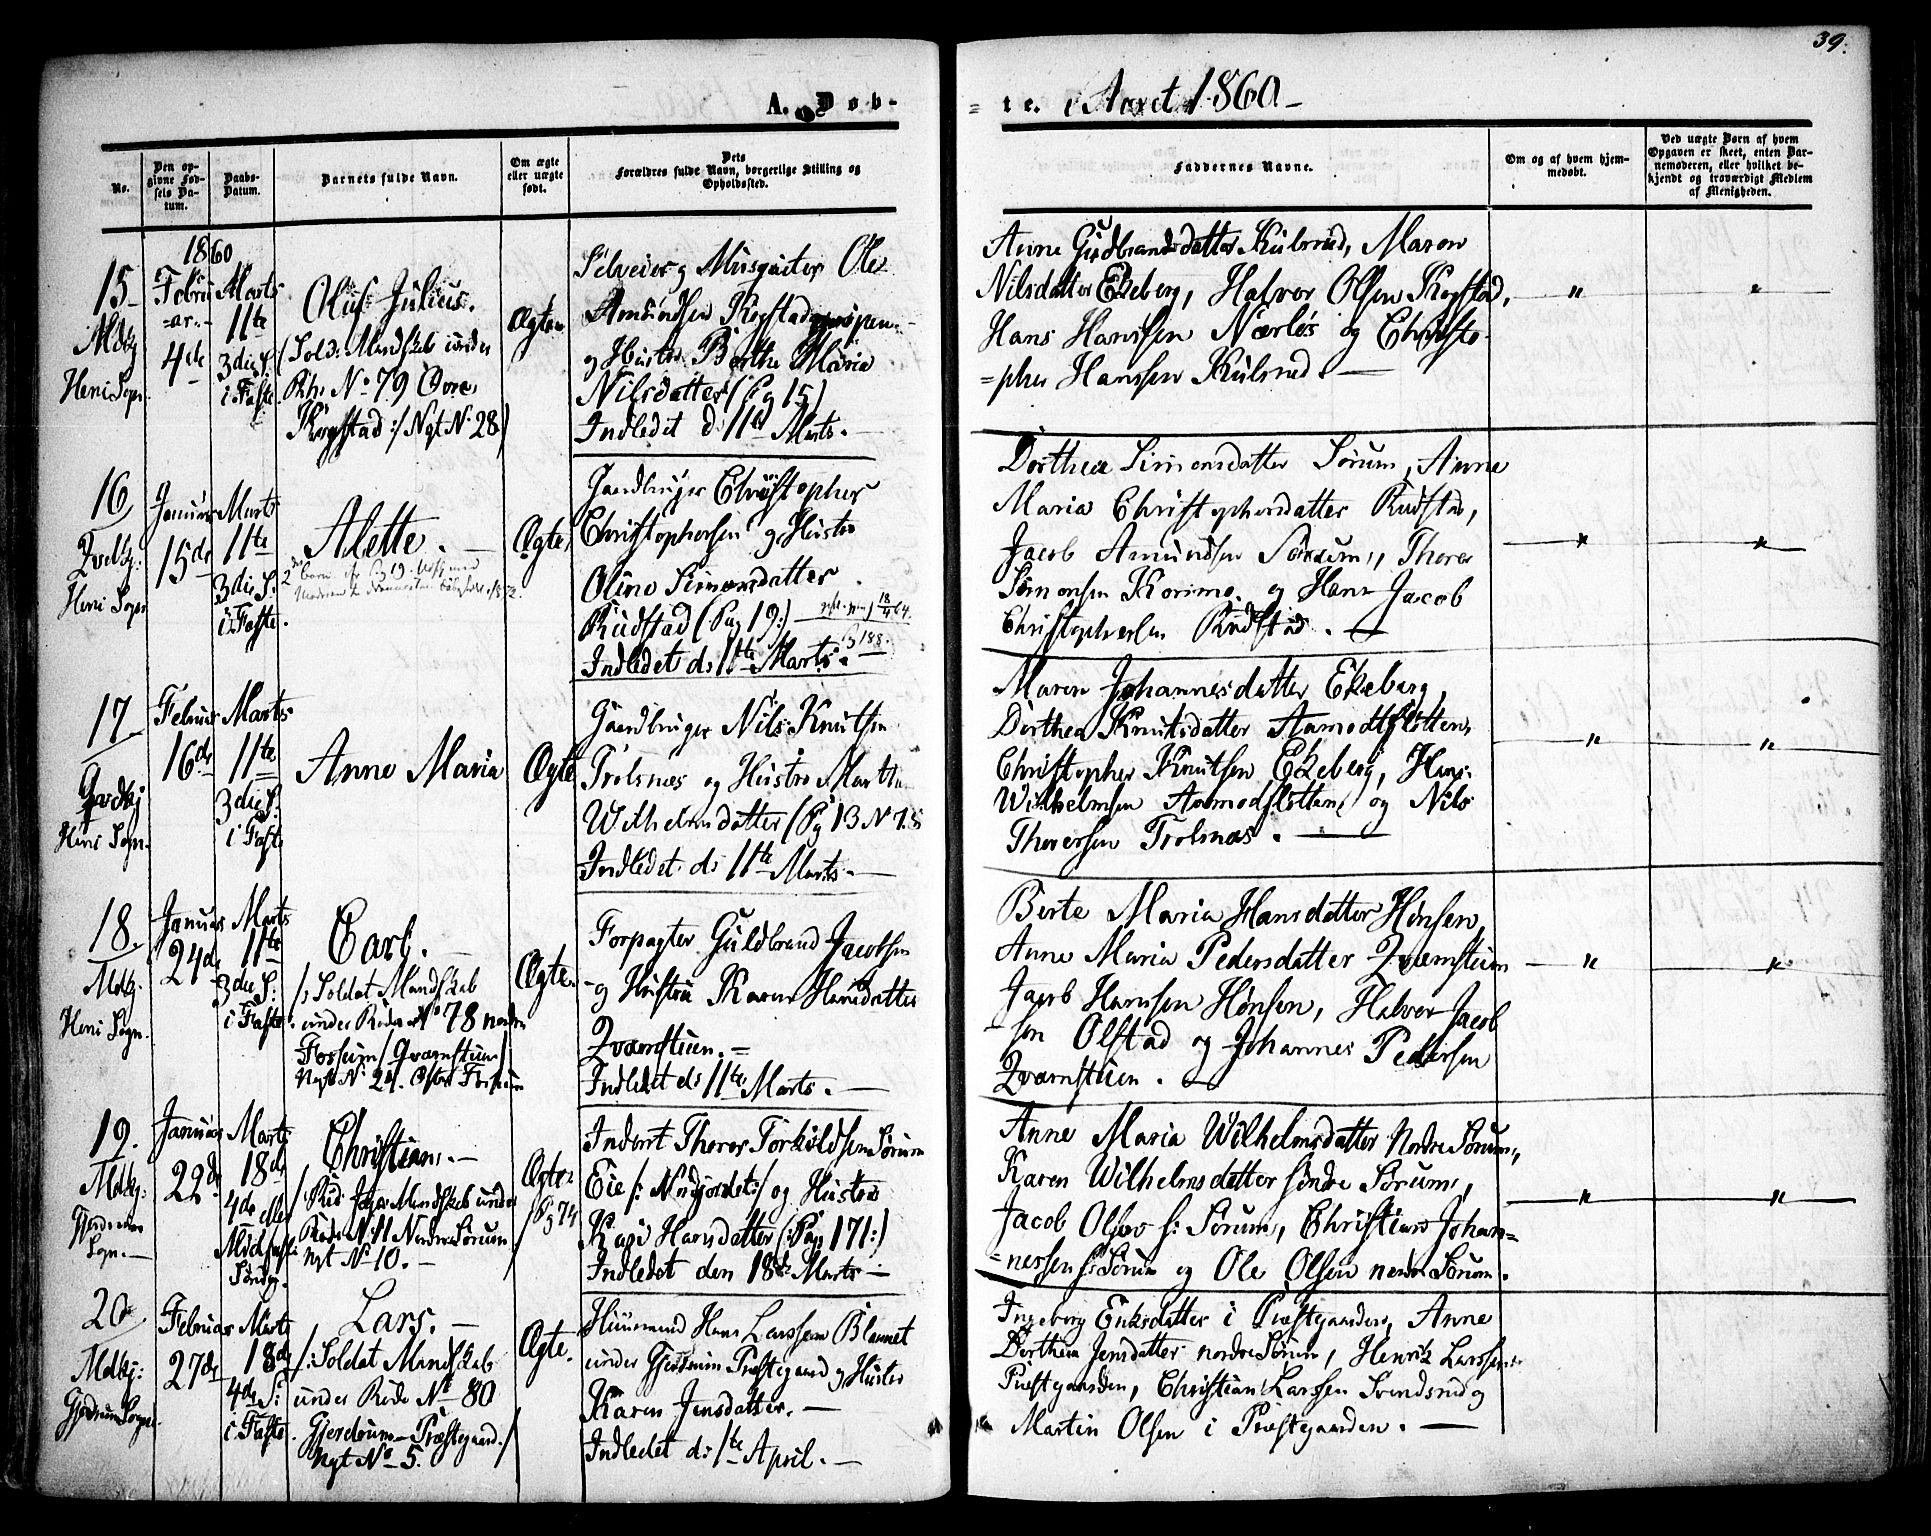 39.
A. Døb-
= te. i Aaret 1860 -
No.
Den op-
givne Fød-
sels Da-
tum.
Daabs-
Datum.
Barnets fulde Navn.
Om ægte
eller uægte
født.
Dets
Forældres fulde Navn, borgerlige Stilling og
Opholdssted.
Faddernes Navne.
Om og af hvem hjem-
medøbt.
Ved uægte Børn af hvem
Opgaven er skeet, enten Bar-
nemoderen, eller hvilket be-
kjendt og troværdigt Medlem
af Menigheden.
1860
15
Mdkj
Heni Sogn.
Febru
=ar.
4de
Marts
11te
3die S:
i Faste.
Oluf Julius.
Sold: Mandskab under
Rde No 79 Øvre
Kogstad :/ Nyt No 28
Ægte
Selveier og Ole
Amundsen Kogstad
og Hustro Berthe Maria
Nilsdatter (Pg 15)
Indledet d: 11te Marts. -
Anne Gudbrandsdatter Kulsrud, Maren
Nilsdatter Ekeberg, Halvor Olsen Kogstad,
Hans Hanssen Nærløs og Christo-
=pher Hanssen Kulsrud. -
" "
16
Qvelkj:
Heni Sogn
Januar
15de
Marts
11te
3die S:
i Faste.
Alette. -
Ægte
Gaardbruger Christopher
Christophersen og Hustro
Oline Simensdatter
Rudstad (Pag 19:)
188.
Indledet d: 11te Marts.
Dorthea Simensdatter Sørum, Anne
Maria Christophersdatter Rudstad,
Jacob Amundsen Sørum, Thorer
Simonsen Korimo. og Hans Jacob
Christophersen Rudstad. -
" "
17
Qvedkj
Heni Sogn.
Februar
16de
Marts
11te
3die S.
i Faste
Anne Maria
Ægte
Gaardbruger Nils Knutsen
Trolsnæs og Hustro Marthe
Wilhelmsdatter (Pg 13 N 78
Indledet d: 11te Marts. -
Maren Johannesdatter Ekeberg,
Dorthea Knutsdatter Aamodtslotten,
Christopher Knutsen Ekeberg, Hans
Wilhelmsen Aamodslotten, og Nils
Thorersen Trolsnæs. -
" "
18.
Mdkj.
Heni Sogn.
Januar
24de
Marts
11te
3die S:
i Faste.
Carl.
/: Soldat Mandskab
under Rode No 78 nordre
Fosseim / Qvarnstuen /
Nyt No 24.
Ægte.
Forpagter Guldbrand Jacobsen
og Hustru Karen Hansdatter
Qvarnstuen. =
Indledet d: 11te Marts. -
Berte Maria Hansdatter Hønsen
Anne Maria Pedersdatter Qvarnstuen
Jacob Hanssen Hønsen, Halvor Jacob
sen Olstad og Johannes Pedersen
Qvarnstuen. -
" "
19.
Mdkj:
Gjerdrum
Sogn. -
Januar
22de
Marts
18de
4de eller
Midfaste
Søndag.
Christian. -
Mandskab under
Rode No 11 Nordre Sørum
Nyt No 10. -
Ægte
/ Pg 74
Inderst Thorer Torkildsen Sørum
Eie /: Nordjordet :/ og Hustro
Kari Hansdatter (: Pag 171:)
Indledet den 18de Marts -
Anne Maria Wilhelmsdatter Nordre Sørum,
Karen Wilhelmsdatter søndre Sørum,
Jacob Olsen s: Sørum, Christian Johan=
=nessen s: Sørum og Ole Olsen nordre Sørum.
" "
20
Mdkj:
Gjerdrum Sogn.
Februar
27de
Marts
18de
4de S:
i Faste.
Lars. -
/: Soldat Mandskab
under Rode No 80
Gjerdrum Præstegaard. /
Nyt No 5.
Ægte.
Huusmand Hans Larssen Blannet
under Gjerdrum Præstegaard og Hustro
Karen Jensdatter. -
Indledet d: 1te April. -
Ingeborg Eriksdatter i Præstgaarden, Anne
Dorthea Jensdatter nordre Sørum, Henrik Larssen
Præstgaarden, Christian Larssen Svendsrud og
Martin Olsen i Præstgaarden. -